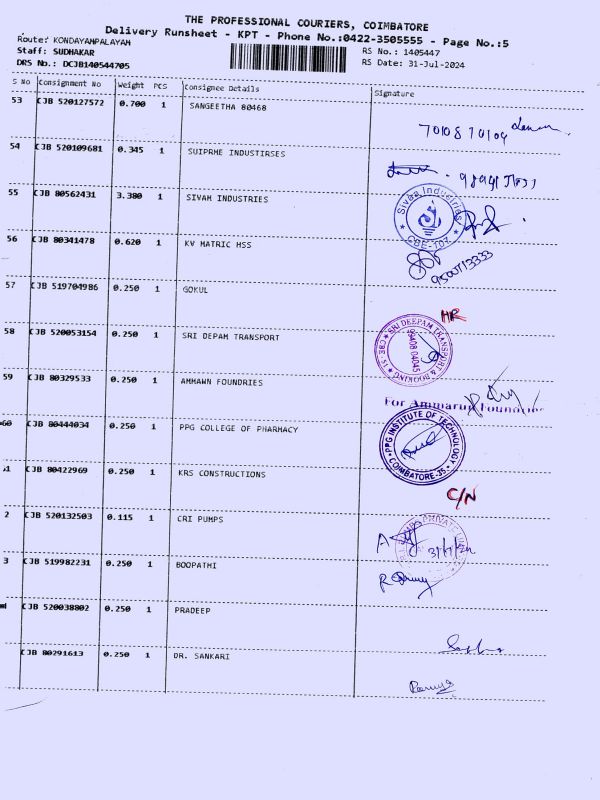 THE PROFESSIONAL COURIERS, COIMBATORE
Delivery Runsheet - KPT - Phone No.:0422-3505555 - Page No.:5
Route: KONDAYAMPALAYAM
Staff: SUDHAKAR
DRS No.: DCJB140544705
RS No.: 1405447
RS Date: 31-Jul-2024
S No Consignment No Weight PCS Consignee Details Signature
53 CJB 520127572 0.700 1 SANGEETHA 80468
54 CJB 520109681 0.345 1 SUIPRME INDUSTIRSES
55 CJB 80562431 3.380 1 SIVAM INDUSTRIES
Sivam Industries
56 CJB 80341478 0.620 1 KV MATRIC HSS
57 CJB 519704986 0.250 1 GOKUL
HR
58 CJB 520053154 0.250 1 SRI DEPAM TRANSPORT
SRI DEEPAM TRANSPORT & BOOKING
CBE-15
99408 04045
59 CJB 80329533 0.250 1 AMMAWN FOUNDRIES
For Ammarun
60 CJB 80444034 0.250 1 PPG COLLEGE OF PHARMACY
PPG INSTITUTE OF TECHNOLOGY
COIMBATORE-35
1 CJB 80422969 0.250 1 KRS CONSTRUCTIONS
C/N
2 CJB 520132503 0.115 1 CRI PUMPS
3 CJB 519982231 0.250 1 BOOPATHI
CJB 520038802 0.250 1 PRADEEP
CJB 80291613 0.250 1 DR. SANKARI